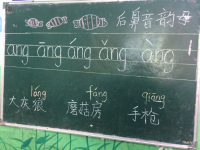 后鼻音韵母
ang āng áng ǎng àng
láng fáng qiāng
大灰狼 蘑菇房 手枪